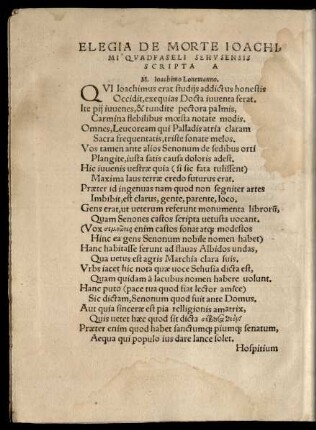 ELEGIA DE MORTE IOACHI
MI QVRDFASELI SEHVSENSIS
SCRIPTA A
M. Ioachimo Lonemanno.
QVI Ioachimus erat studijs addictus honestis
Occidit, exequias Docta iuuenta ferat.
Ite pij iuuenes, & tundite pectora palmis,
Carmina flebilibus mœsta notate modis.
Omnes, Leucoream qui Palladis atria claram
Sacra frequentatis, triste sonate melos.
Vos tamen ante alios Senonum de sedibus orti
Plangite, iusta satis causa doloris adest.
Hic iuuenis uestræ quia (si sic fata tulissent)
Maxima laus terræ credo futurus erat.
Præter id ingenuas nam quod non segniter artes
Imbibit, est clarus, gente, parente, loco.
Gens erat, ut ueterum referunt monumenta librorũ,
Quam Senones castos scripta uetusta uocant.
(Vox enim castos sonat atq; modestos
Hinc ea gens Senonum nobile nomen habet)
Hanc habitasse ferunt ad flauas Albidos undas,
Qua uetus est agris Marchia clara suis.
Vrbs iacet hic nota quæ uoce Sehusia dicta est,
Quam quidam à lacubus nomen habere uolunt.
Hanc puto (pace tua quod fiat lector amice)
Sic dictam, Senonum quod fuit ante Domus.
Aut quia sinceræ est pia relligionis amatrix,
Quis uetet hæc quod sit dicta
Præter enim quod habet sanctumq; piumq; senatum,
Aequa qui populo ius dare lance solet.
Hospitium